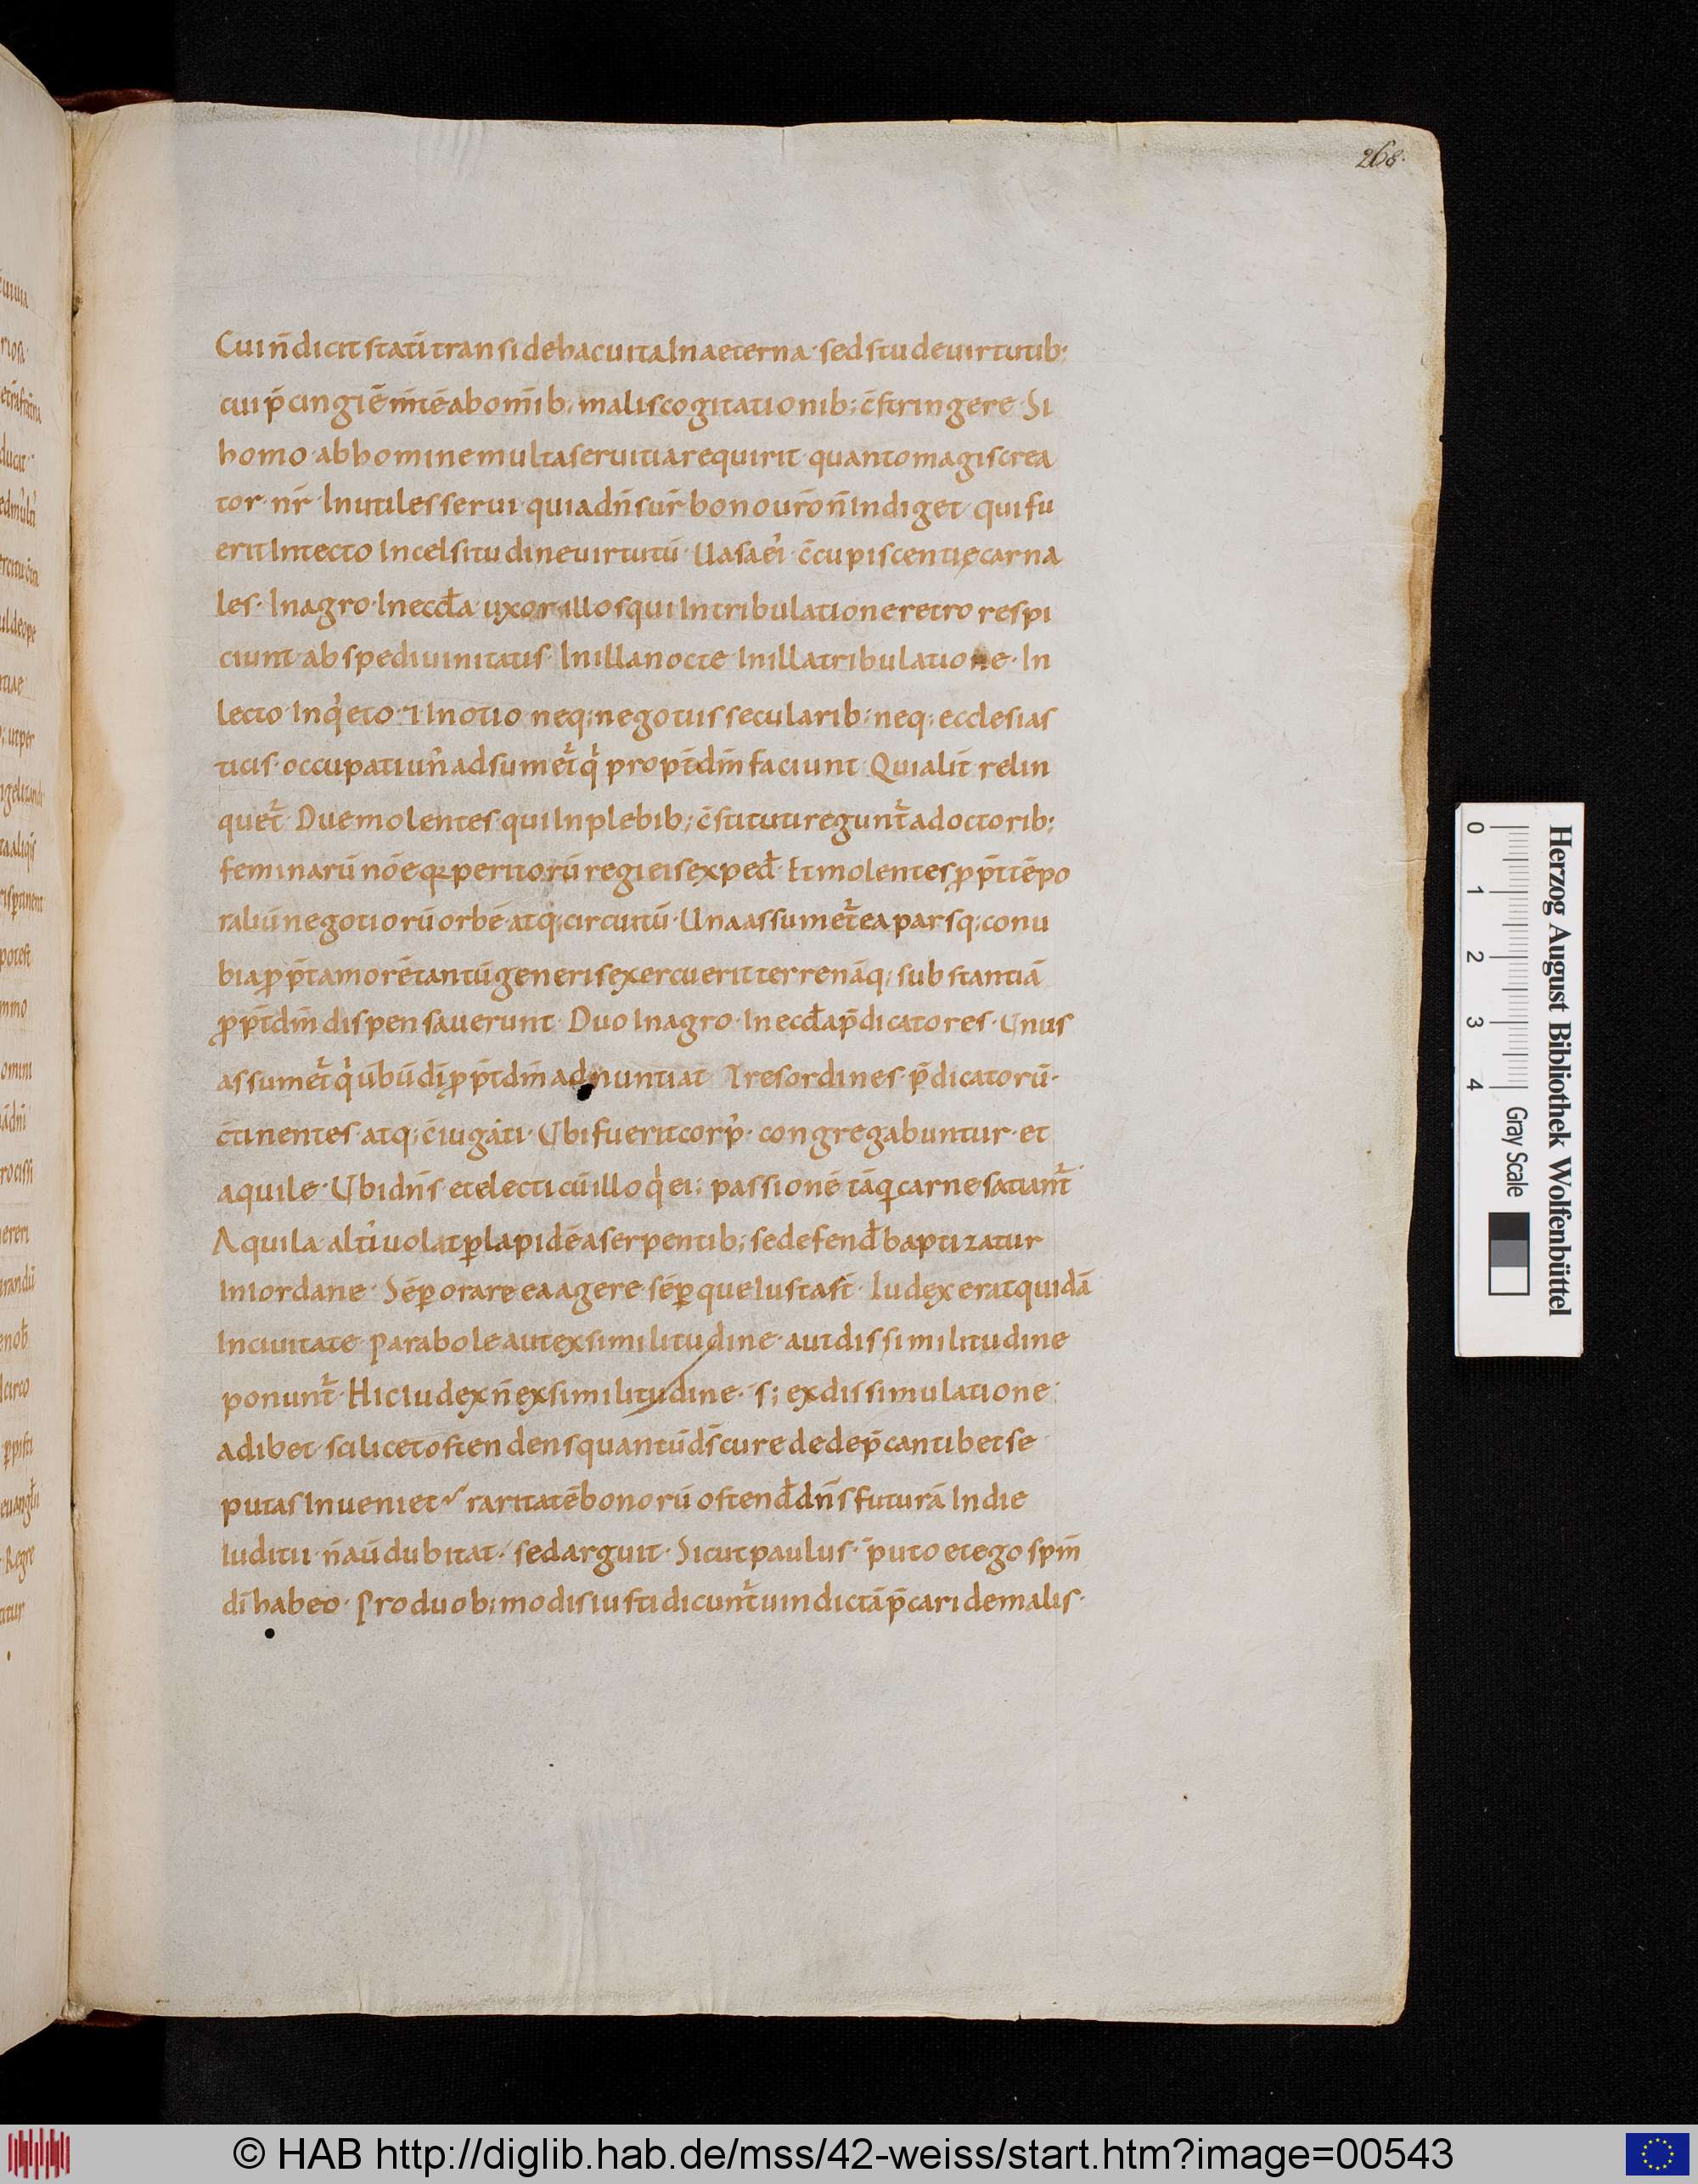 268.
Cui n̄ dicit statī transi de hac uita In aeterna· sed stude uirtutib:
cui p̄cingi ē m̄tē ab om̄ib; malis cogitationib; c̄stringere· Si
homo· ab homine multa seruitia requirit· quanto magis crea
tor· nr̄· Inutiles serui· quia dn̄s ur̄ bono ur̄o n̄ Indiget· qui fu
erit In tecto In celsitudine uirtutū· Uasa ei᾽· c̄cupiscentię carna
les· In agro· In eccƚa· uxor illos qui In tribulatione retro respi
ciunt· ab spe diuinitatis· In illa nocte· In illa tribulatione· In
lecto· In qͥeto· ⁊ In otio· neq; negotiis secularib; neq; ecclesias
ticis· occupatiun̄ adsumet᷑ qͥ propt̄ dm̄ faciunt· Qui alīt relin
quet᷑· Due molentes qui In plebib; c̄stituti regunt᷑ a doctorib;
feminarū nōe q͛ peritorū regi eis exped̄· Et molentes ꝓpt̄ tēpo
raliū negotiorū orbē atq; circuitū· Una assumet᷑ ea pars q; conu
bia ꝓpt̄ amorē tantū generis exercuerit terrenāq; substantiā
ꝓpt̄ dm̄ dispensauerunt· Duo In agro· In eccƚa p̄dicatores· Unus
assumet᷑ qͥ ūbū dī ꝓpt̄ dm̄ adnuntiat Tres ordines· p̄dicatorū·
c̄tinentes· atq; c̄iugati· Ubi fuerit corp᾽· congregabuntur· et
aquile· Ubi dn̄s· et electi cū illo qͥ ei; passionē tāq carne satiant᷑
Aquila alti᾽ uolat ꝑ lapidē a serpentib; se defend̄ baptizatur
In Iordane· Sēꝑ orare ea agere sēꝑ que Iusta s̄t· Iudex erat quidā
In ciuitate· parabole aut ex similitudine· aut dissimilitudine
ponunt᷑· Hic Iudex n̄ ex similitudine· s; ex dissimulatione·
adibet· scilicet ostendens quantū ds̄ cure de dep̄cantib et se
putas Inueniet· raritatē bonorū ostend̄ dn̄s futurā In die
Iuditii· n̄ aū dubitat· sed arguit· Sicut paulus· puto et ego spm̄
dī habeo· Pro duob; modis iusti dicunt᷑ uindictā p̄cari de malis·
Herzog August Bibliothek Wolfenbüttel
0 1 2 3 4 Gray Scale
© HAB http://diglib.hab.de/mss/42-weiss/start.htm?image=00543